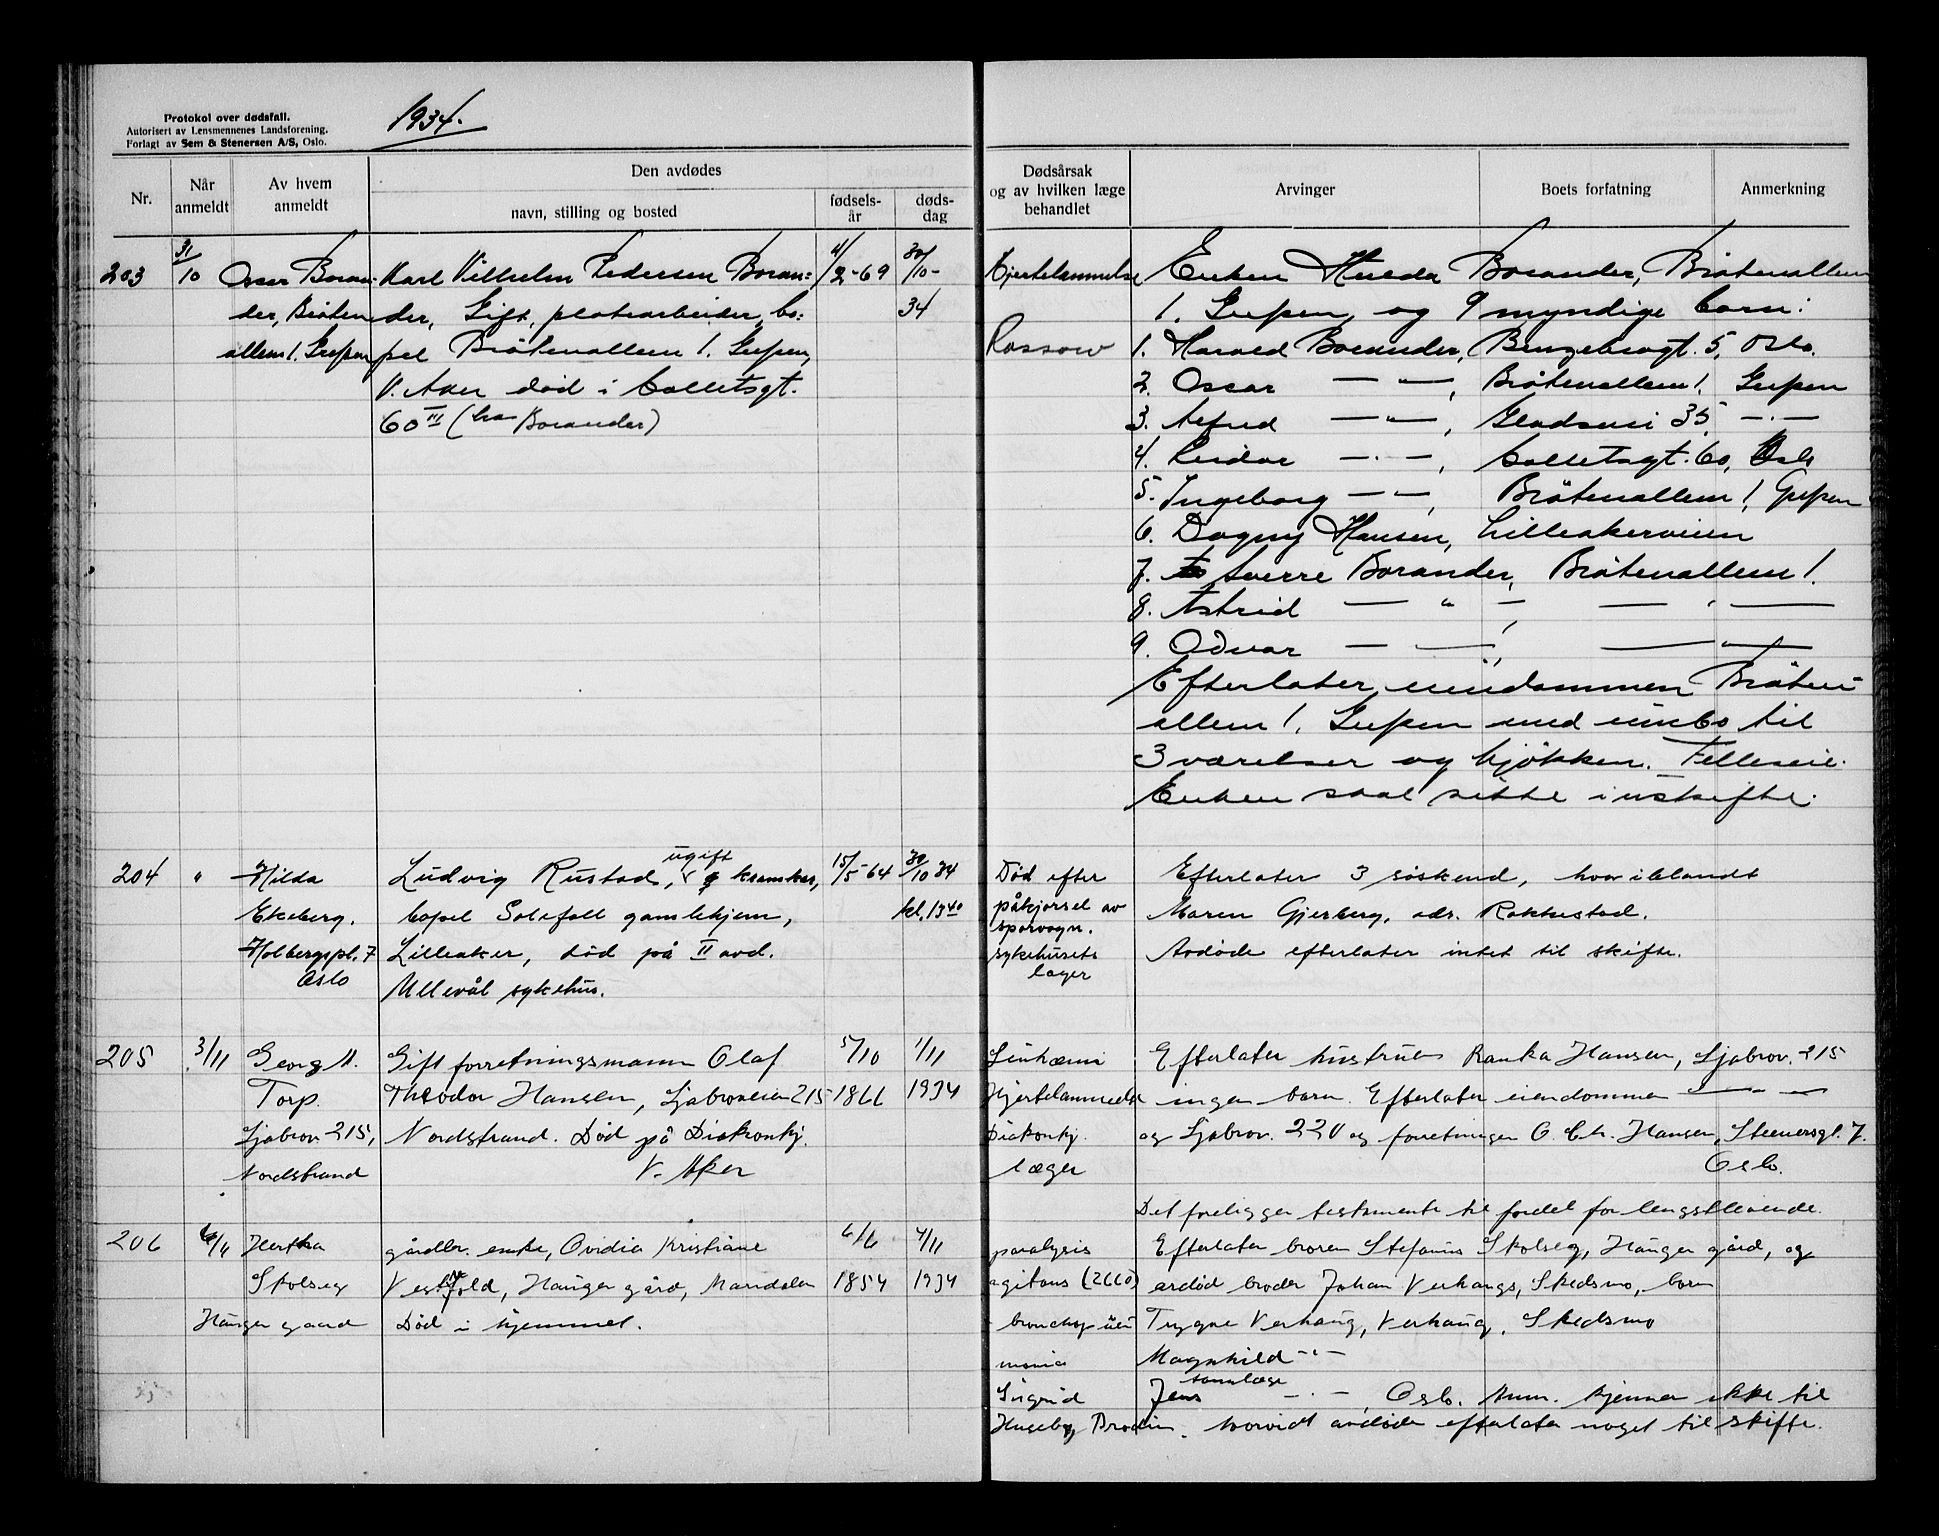 Protokol over dødsfall.
Autorisert av Lensmennenes Landsforening.
Forlagt av Sem & Stenersen A/S, Oslo.
1934.
Nr.
Når anmeldt
Av hvem anmeldt
Den avdødes
navn, stilling og bosted
fødsels-år
døds-dag
Dødsårsak og av hvilken læge behandlet
Arvinger
Boets forfatning
Anmerkning
203
31/10
Oscar Boran-
der, Bråten
alleen 1. Grefsen
Karl Vilhelm Pedersen Boran=
der, Gift, platearbeider, bo=
pel Bråtenalleen 1. Grefsen,
V. Aker død i Colletsgt.
60 III (hos Borander)
4/2-69
30/10-
34
Hjertelammelse
Rossow
Enken Hulda Borander, Bråtenalleen
1. Grefsen og 9 myndige barn:
1. Harald Borander, Bengebrogt. 5, Oslo.
2. Oscar — " —, Bråtenalleen 1. Grefsen
3. Alfred — " —, Gladsvei 35, — " —
4. Reidar — " —, Colletsgt. 60, Oslo
5. Ingeborg — " —, Bråtenalleen 1, Grefsen
6. Dagny Hansen, Lilleakerveien
7. Sverre Borander, Bråtenalleen 1.
8. Astrid — " — — " —
9. Odvar — " —, — " —
Efterlater eiendommen Bråten-
alleen 1. Grefsen med innbo til
3 værelser og kjøkken. Felleseie.
Enken skal sitte i uskifte.
204
"
Hilda
Ekeberg.
Holbergspl. 7
Oslo
ugift
Ludvig Rustad, kramkar,
bopel Solefall gamlehjem,
Lilleaker, død på II avd.
Ullevål sykehus.
15/5-64
30/10 34
kl. 13 40
Død efter
påkjørsel av
sporvogn.
sykehusets
læger
Efterlater 3 søskend, hvoriblandt
Maren Gjerberg, adr. Rakkestad.
Avdøde efterlater intet til skifte.
205
3/11
Georg M.
Torp.
Ljabrov. 215,
Nordstrand
Gift forretningsmann Olaf
Theodor Hansen, Ljabroveien 215
Nordstrand. Død på Diakonhj.
V. Aker
5/10
1866
1/11
1934
Leukæmi
Hjertelammelse
Diakonhj.
læger
Efterlater hustruen Ranka Hansen, Ljabrov. 215
ingen barn. Efterlater eiendommen — " —
og Ljabrov. 220 og forretningen O. Th. Hansen, Steenersgt. 7.
Oslo.
Det foreligger testamente til fordel for lengstlevende.
206
6/11
Hertha
Skolseg
Hauger gaard
gårdbr. enke, Ovidia Kristiane
Vestfold, Hauger gård, Maridalen
Død i hjemmet.
6/6
1854
4/11
1934
paralysis
agitans (2660)
bronchopneu
monia
Sigrid
Hugeby Brodin.
Efterlater broren Stefanus Skolseg, Hauger gård, og
avdød broder Johan Verhaugs, Skedsmo, barn
Trygve Verhaug, Verhaug, Skedsmo
Magnhild — " —
tannlæge
Jens — " —, Oslo. Anm. kjenner ikke til
hvorvidt avdøde efterlater noget til skifte.